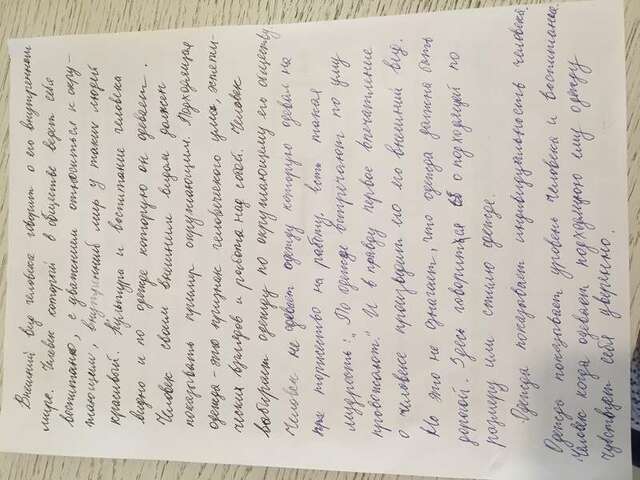 Внешний вид человека говорит о его внутреннем
мире. Человек который в обществе ведет себя
воспитанно, с уважением относиться к окру-
жающим, внутренний мир у таких людей
красивый. Культура и воспитание человека
видно и по одежде которую он одевает.
Человек своим внешним видом должен
показывать пример окружающим. Подходящая
одежда - это признак человеческого ума, эстети-
ческих взглядов и работа над собой. Человек
выбирает одежду по окружающему его обществу
Человек не одевает одежду которую одевал на
при торжество на работу. Есть такая
мудрость: "По одежде встречают, по уму
провожают." И в правду первое впечатление
о человеке производит именно его внешний вид.
Но это не означает, что одежда должна быть
дорогой. Здесь говориться о подходящей по
размеру или стилю одежде.
Одежда показывает индивидуальность человека.
Одежда показывает уровень человека и воспитание.
Человек когда одевает подходящую ему одежду
чувствует себя уверенно.